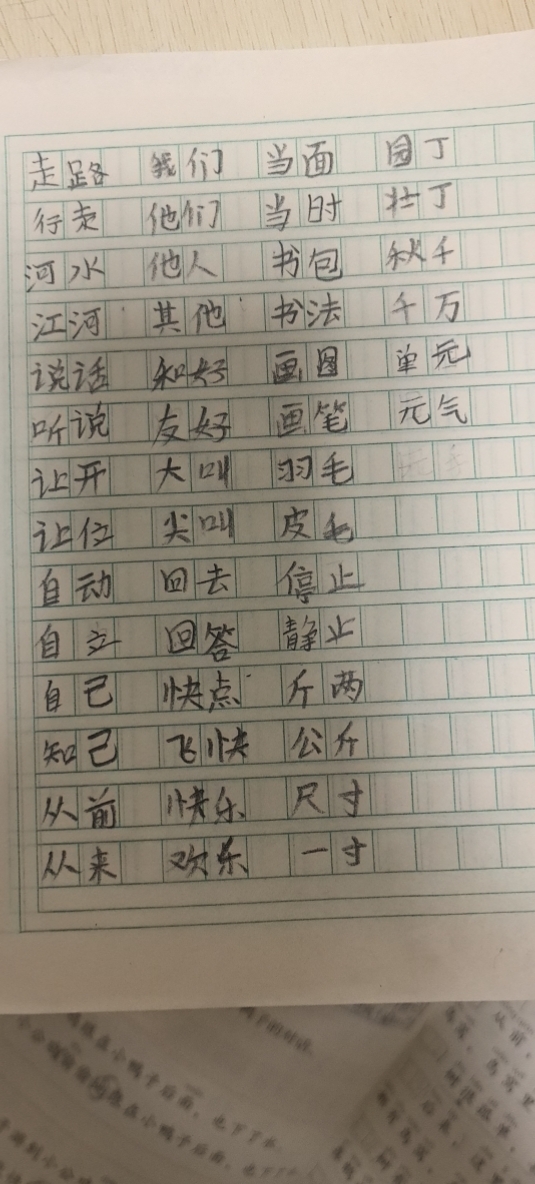 走路 我们 当面 园丁
行走 他们 当时 壮丁
河水 他人 书包 秋千
江河 其他 书法 千万
说话 和好 画图 单元
听说 友好 画笔 元气
让开 大叫 羽毛
让位 尖叫 皮毛
自动 回去 停止
自立 回答 静止
自己 快点 斤两
知己 飞快 公斤
从前 快乐 尺寸
从来 欢乐 一寸